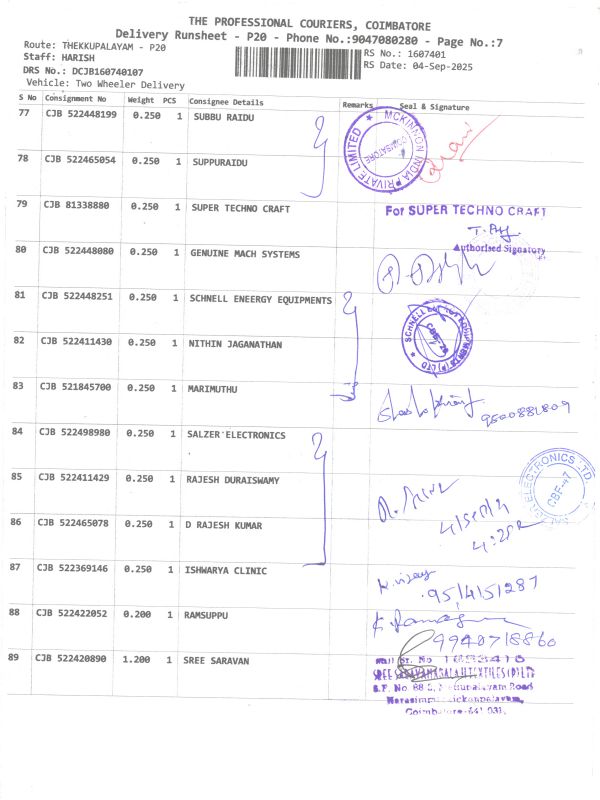 THE PROFESSIONAL COURIERS, COIMBATORE
Delivery Runsheet - P20 - Phone No.:9047080280 - Page No.:7
Route: THEKKUPALAYAM - P20
Staff: HARISH
DRS No.: DCJB160740107
Vehicle: Two Wheeler Delivery
RS No.: 1607401
RS Date: 04-Sep-2025
S No Consignment No Weight PCS Consignee Details Remarks Seal & Signature
77 CJB 522448199 0.250 1 SUBBU RAIDU
MCKINNON INDIA PRIVATE LIMITED
COIMBATORE
78 CJB 522465054 0.250 1 SUPPURAIDU
79 CJB 81338880 0.250 1 SUPER TECHNO CRAFT
For SUPER TECHNO CRAFT
Authorised Signatory
80 CJB 522448080 0.250 1 GENUINE MACH SYSTEMS
81 CJB 522448251 0.250 1 SCHNELL ENEERGY EQUIPMENTS
82 CJB 522411430 0.250 1 NITHIN JAGANATHAN
83 CJB 521845700 0.250 1 MARIMUTHU
9500881809
84 CJB 522498980 0.250 1 SALZER ELECTRONICS
ELECTRONICS LTD
CBF-47
85 CJB 522411429 0.250 1 RAJESH DURAISWAMY
86 CJB 522465078 0.250 1 D RAJESH KUMAR
87 CJB 522369146 0.250 1 ISHWARYA CLINIC
88 CJB 522422052 0.200 1 RAMSUPPU
9940718860
89 CJB 522420890 1.200 1 SREE SARAVAN
Coimbatore-641 031.